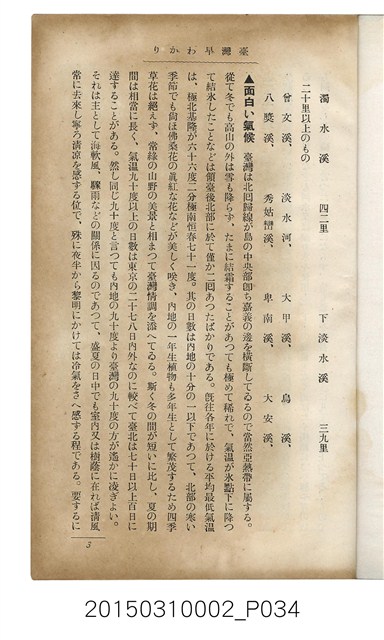 りかわ早灣臺
濁水溪　四二里　下淡水溪　三九里
二十里以上のもの
曾文溪、　淡水河、　大甲溪、　烏溪、
八奬溪、　秀姑巒溪、　卑南溪、　大安溪、
▲面白い氣候　臺灣は北囘歸線が島の中央部卽ち嘉義の邊を橫斷してゐるので當然亞熱帶に屬する。
從て冬でも高山の外は雪も降らず、たまに結霜することがあつても極めて稀れで、氣溫が氷點下に降つ
て結氷したことなどは領臺後北部に於て僅か二囘あつたばかりである。旣往各年に於ける平均最低氣溫
は、極北基隆が六十六度二分極南恒春七十一度。其の日數は內地の十分の一以下であつて、北部の寒い
季節でも尙ほ佛桑花の眞紅な花などが美しく咲き、內地の一年生植物も多年生として繁茂するため四季
草花は絕えず、常綠の山野の美景と相まつて臺灣情調を添へてゐる。斯く冬の間が短いに比し、夏の期
間は相當に長く、氣溫九十度以上の日數は東京の二十七八日內外なのに較べて臺北は七十日以上百日に
達することがある。然し同じ九十度と言つても內地の九十度より臺灣の九十度の方が遙かに凌ぎよい。
それは主として海軟風、驟雨などの關係に因るのであつて、盛夏の日中でも室內又は樹蔭に在れば淸風
常に去來し寧ろ淸凉を感ずる位で、殊に夜半から黎明にかけては冷氣をさへ感ずる程である。要するに
3
20150310002_P034